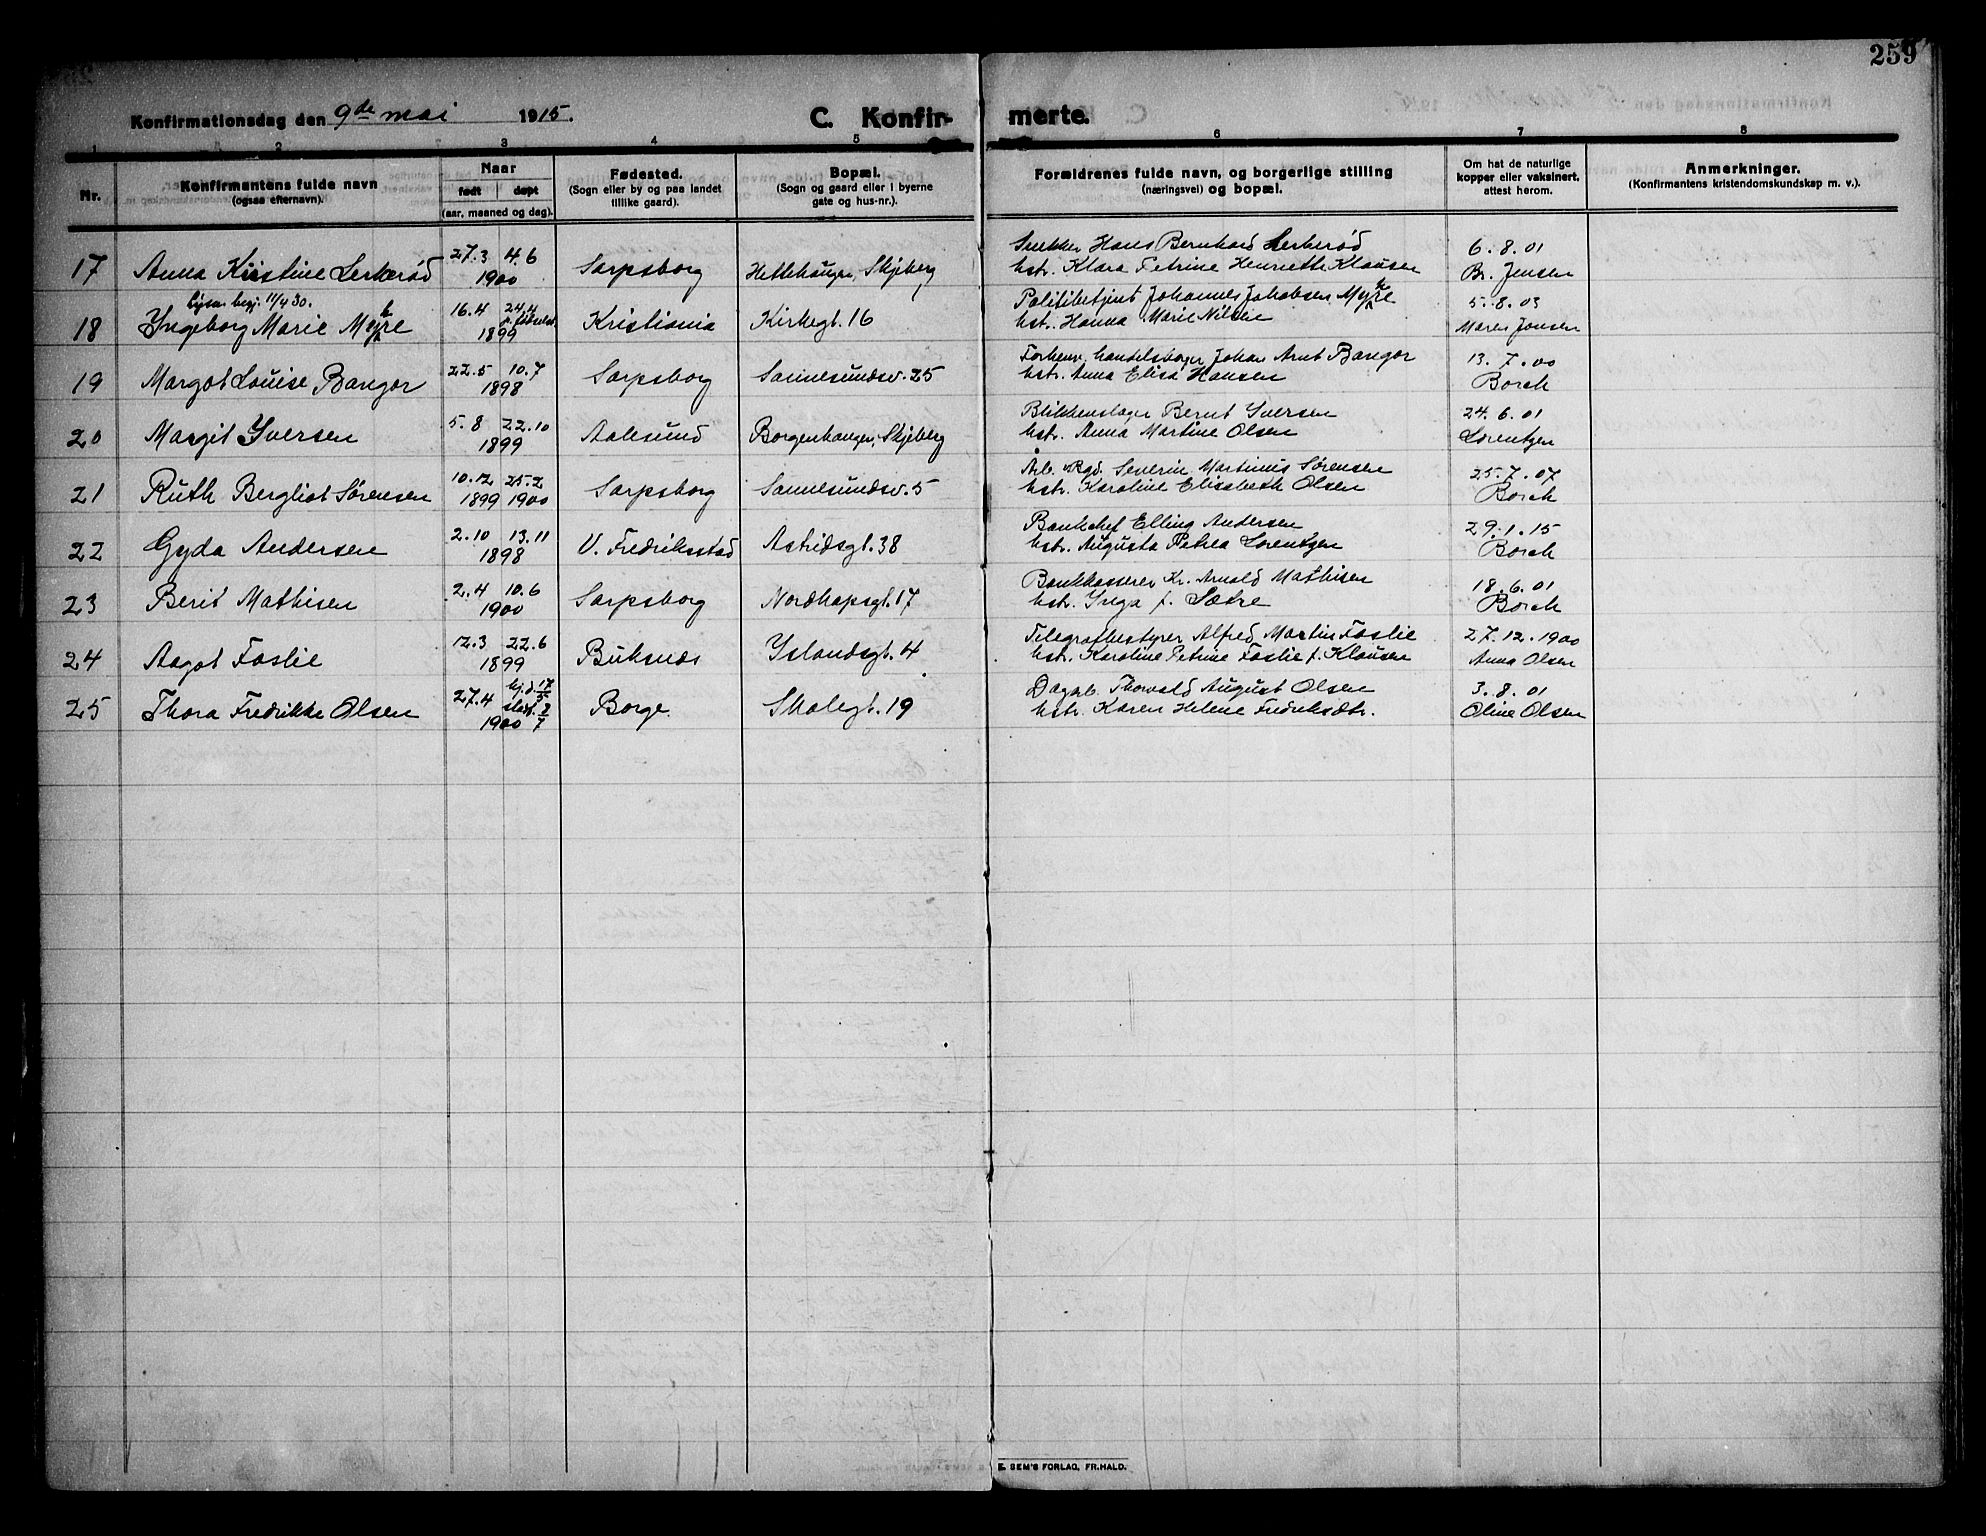 259
Konfirmationsdag den 9de mai 1915.
C. Konfir-
merte.
1 2 3 4 5 6 7 8
Nr.
Konfirmantens fulde navn
(ogsaa efternavn).
Naar
født døpt
(aar, maaned og dag).
Fødested.
(Sogn eller by og paa landet
tillike gaard).
Bopæl.
(Sogn og gaard eller i byerne
gate og hus-nr.).
Forældrenes fulde navn, og borgerlige stilling
(næringsvei) og bopæl.
Om hat de naturlige
kopper eller vaksinert,
attest herom.
Anmerkninger.
(Konfirmantens kristendomskundskap m. v.).
27.3 4.6 Snekker Hans Bernhard Lerkerød 6.8.01
17 Anna Kristine Lerkerød 1900 Sarpsborg Hettehaugen, Skjeberg hstr. Klara Petrine Henriette Klausen Br. Jensen
Lysn. beg. 11/4 30.
16.4 24.4 Politibetjent Johannes Jakobsen Myhre 5.8.03
18 Ingeborg Marie Myhre 1899 Kristiania Kirkegt. 16 hstr. Hanna Marie Nilsen Maren Jonsen
22.5 10.7 Forhenv. handelsborger Johan Arnt Bangor 13.7.00
19 Margot Louise Bangor 1898 Sarpsborg Sannesundsv. 25 hstr. Anna Elisa Hansen Borch
5.8 22.10 Blikkenslager Bernt Iversen 24.6.01
20 Margit Iversen 1899 Aalesund Borgenhaugen, Skjeberg hstr. Anna Martine Olsen Lorentzen
10.12 25.2 Arb. Severin Martinus Sørensen 25.7.07
21 Ruth Bergliot Sørensen 1899 1900 Sarpsborg Sannesundsv. 5 hstr. Karoline Elisabeth Olsen Borch
2.10 13.11 Bankchef Elling Andersen 29.1.15
22 Gyda Andersen 1898 V. Fredriksstad Astridsgt. 38 hstr. Augusta Petrea Lorentzen Borch
2.4 10.6 Bankkasserer Kr. Arnold Mathisen 18.6.01
23 Berit Mathisen 1900 Sarpsborg Nordkapsgt. 17 hstr. Inga f. Sætre Borch
12.3 22.6 Telegrafbestyrer Alfred Martin Foslie 27.12.1900
24 Aagot Foslie 1899 Buksnæs Islandsgt. 4 hstr. Karoline Petrine Foslie f. Klausen Anna Olsen
27.4 hj.d. 17/5 Dagarb. Thorvald August Olsen 3.8.01
25 Thora Fredrikke Olsen 1900 stadf. 8/7 Borge. Skolegt. 19 hstr. Karen Helene Fredriksdtr. Oline Olsen
E. SEM'S FORLAG, FR.HALD.